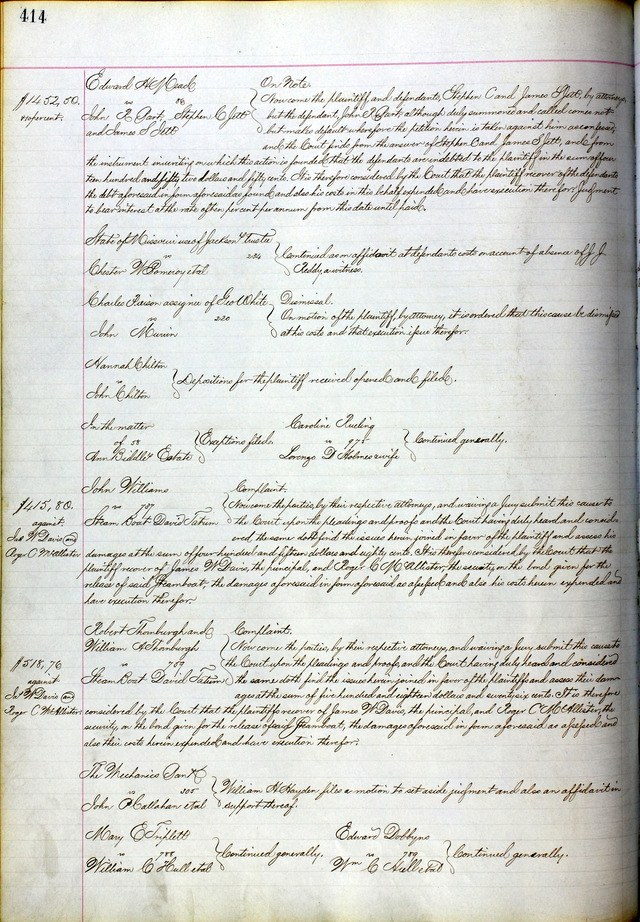 414
Edward H Mead
vs 86
John R. Gart, Stephen C Jett
and James S Jett
$1452,50.
10 percent.
On Note.
Now come the plaintiff, and defendants, Stephen C and James S Jett, by attorneys,
but the defendant, John R Gart although duly summoned and called comes not
but makes default wherefore the petition herein is taken against him as confessed,
and the Court finds from the answer of Stephen C and James S Jett, and from
the instrument in writing on which this action is founded that the defendants are indebted to the plaintiff in the sum of four
teen hundred and fifty two dollars and fifty cents. It is therefore considered by the Court that the plaintiff recover of the defendants
the debt aforesaid in form aforesaid found, and also his costs in this behalf expended and have execution therefor. Judgment
to bear interest at the rate of ten percent per annum from this date until paid.
State of Missouri use of Jackson trustee
vs 234
Chester W Pomeroy et al
Continued as on affidavit at defendants costs on account of absence of J. J.
Reddy a witness.
Charles Reison assignee of Geo White
vs 220
John Murin
Dismissal.
On motion of the plaintiff, by attorney, it is ordered that this cause be dismissed
at his costs and that execution issue therefor.
Hannah Chilton
vs
John Chilton
Depositions for the plaintiff received opened and filed.
In the matter
of 58
Ann Biddle's Estate
Exceptions filed.
Caroline Rueling
vs 975
Lorenzo D Holmes & wife
Continued generally.
John Williams
vs 787
Steam Boat David Tatum
$415,80.
against
Jas W Davis and
Roger C McAllister
Complaint.
Now come the parties, by their respective attorneys, and waiving a Jury submit this cause to
the Court upon the pleadings and proofs and the Court having duly heard and consid
ered, the same doth find the issues herein joined in favor of the plaintiff and assess his
damages at the sum of four hundred and fifteen dollars and eighty cents. It is therefore considered by the Court that the
plaintiff recover of James W Davis, the principal, and Roger C McAllister, the security, on the bond given for the
release of said Steamboat, the damages aforesaid in form aforesaid as assessed and also his costs herein expended and
have execution therefor.
Robert Thornburgh and
William A Thornburgh
vs 789
Steam Boat David Tatum
$518,76
against
Jas W Davis and
Roger C McAllister
Complaint.
Now come the parties, by their respective attorneys, and waiving a Jury submit this cause to
the Court upon the pleadings and proofs, and the Court having duly heard and considered
the same doth find the issues herein joined in favor of the plaintiffs and assess their dam
ages at the sum of five hundred and eighteen dollars and seventy six cents. It is therefore
considered by the Court that the plaintiffs recover of James W Davis, the principal, and Roger C McAllister, the
security, on the bond given for the release of said Steamboat, the damages aforesaid in form aforesaid as assessed and
also their costs herein expended and have execution therefor.
The Mechanics Bank
vs 305
John P Callahan et al
William H Hayden files a motion to set aside judgment and also an affidavit in
support thereof.
Mary E Triplett
vs 788
William C Hull et al
Continued generally.
Edward Dobbyns
vs 789
Wm C Hull et al
Continued generally.